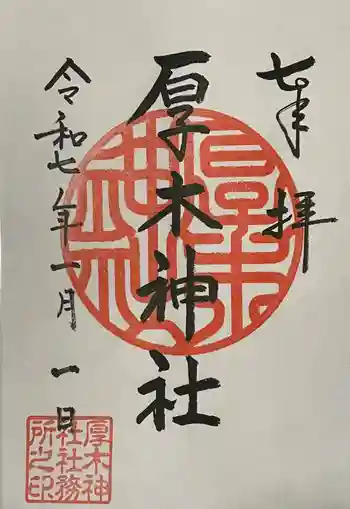 奉拝
厚木神社
令和七年一月一日
厚木神社
厚木神
社社務
所之印